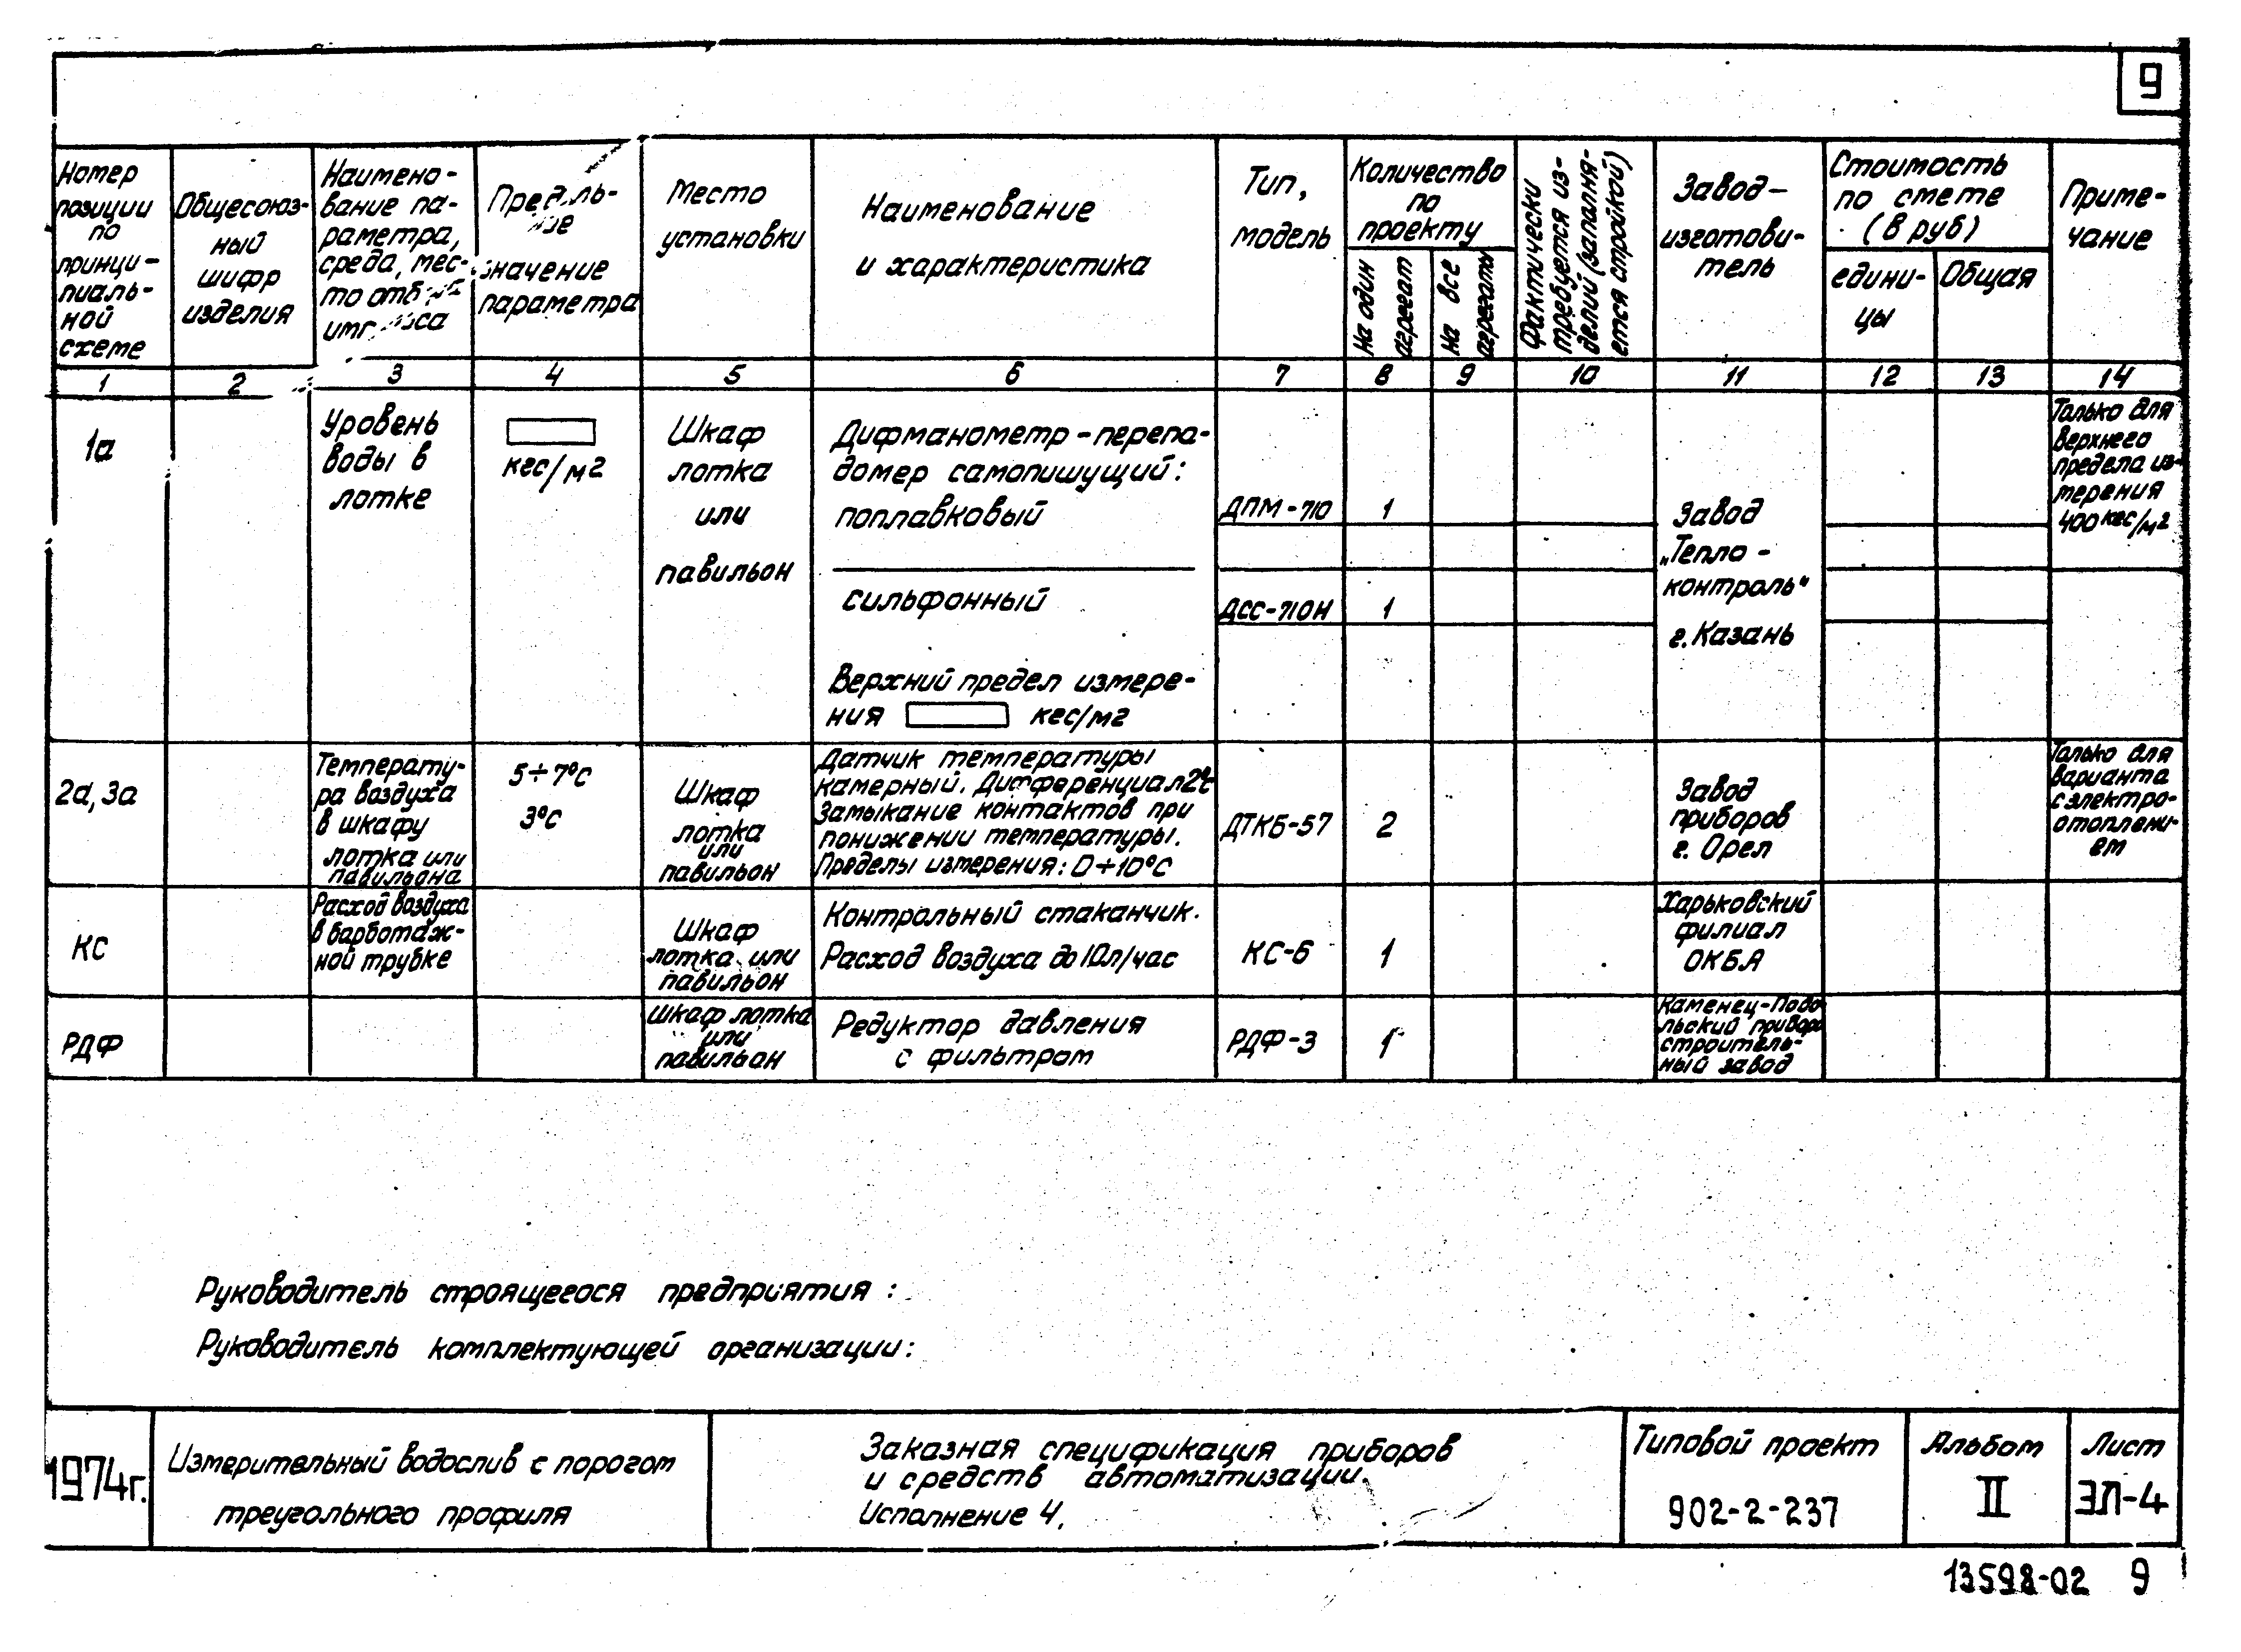 9
Номер
позиции
по
принци-
пиаль-
ной
схеме
Общесоюз-
ный
шифр
изделия
Наимено-
вание па-
раметра,
среда, мес-
то
Предель-
ное
значение
параметра
Место
установки
Наименование
и характеристика
Тип,
модель
Количество
по
проекту
На один
агрегат
На все
агрегаты
Фактически
требуется из-
делий (заполня-
ется стройкой)
Завод-
изготови-
тель
Стоимость
по смете
(в руб)
едини-
цы
Общая
Приме-
чание
1 2 3 4 5 6 7 8 9 10 11 12 13 14
1а
Уровень
воды в
лотке
кгс/м2
Шкаф
лотка
или
павильон
Дифманометр-перепа-
домер самопишущий:
поплавковый
сильфонный
Верхний предел измере-
ния кгс/м2
ДПМ-710
1
ДСС-710Н
1
Завод
„Тепло-
контроль"
г. Казань
Только для
верхнего
предела из-
мерения
400 кгс/м2
2а, 3а
Температу-
ра воздуха
в шкафу
лотка или
павильона
5÷7°С
3°С
Шкаф
лотка
или
павильон
Датчик температуры
камерный. Дифференциал 2°С
Замыкание контактов при
понижении температуры.
Пределы измерения: 0÷10°С
ДТКБ-57
2
Завод
приборов
г. Орел
Только для
варианта
с электро-
отоплени-
ем
КС
Расход воздуха
в барботаж-
ной трубке
Шкаф
лотка или
павильон
Контрольный стаканчик.
Расход воздуха до 10л/час
КС-6
1
Харьковский
филиал
ОКБА
РДФ
Шкаф лотка
или
павильон
Редуктор давления
с фильтром
РДФ-3
1
Каменец-Подо
льский приборо
строитель-
ный завод
Руководитель строящегося предприятия:
Руководитель комплектующей организации:
1974г.
Измерительный водослив с порогом
треугольного профиля
Заказная спецификация приборов
и средств автоматизации.
Исполнение 4.
Типовой проект
902-2-237
Альбом
II
Лист
ЭЛ-4
13598-02 9